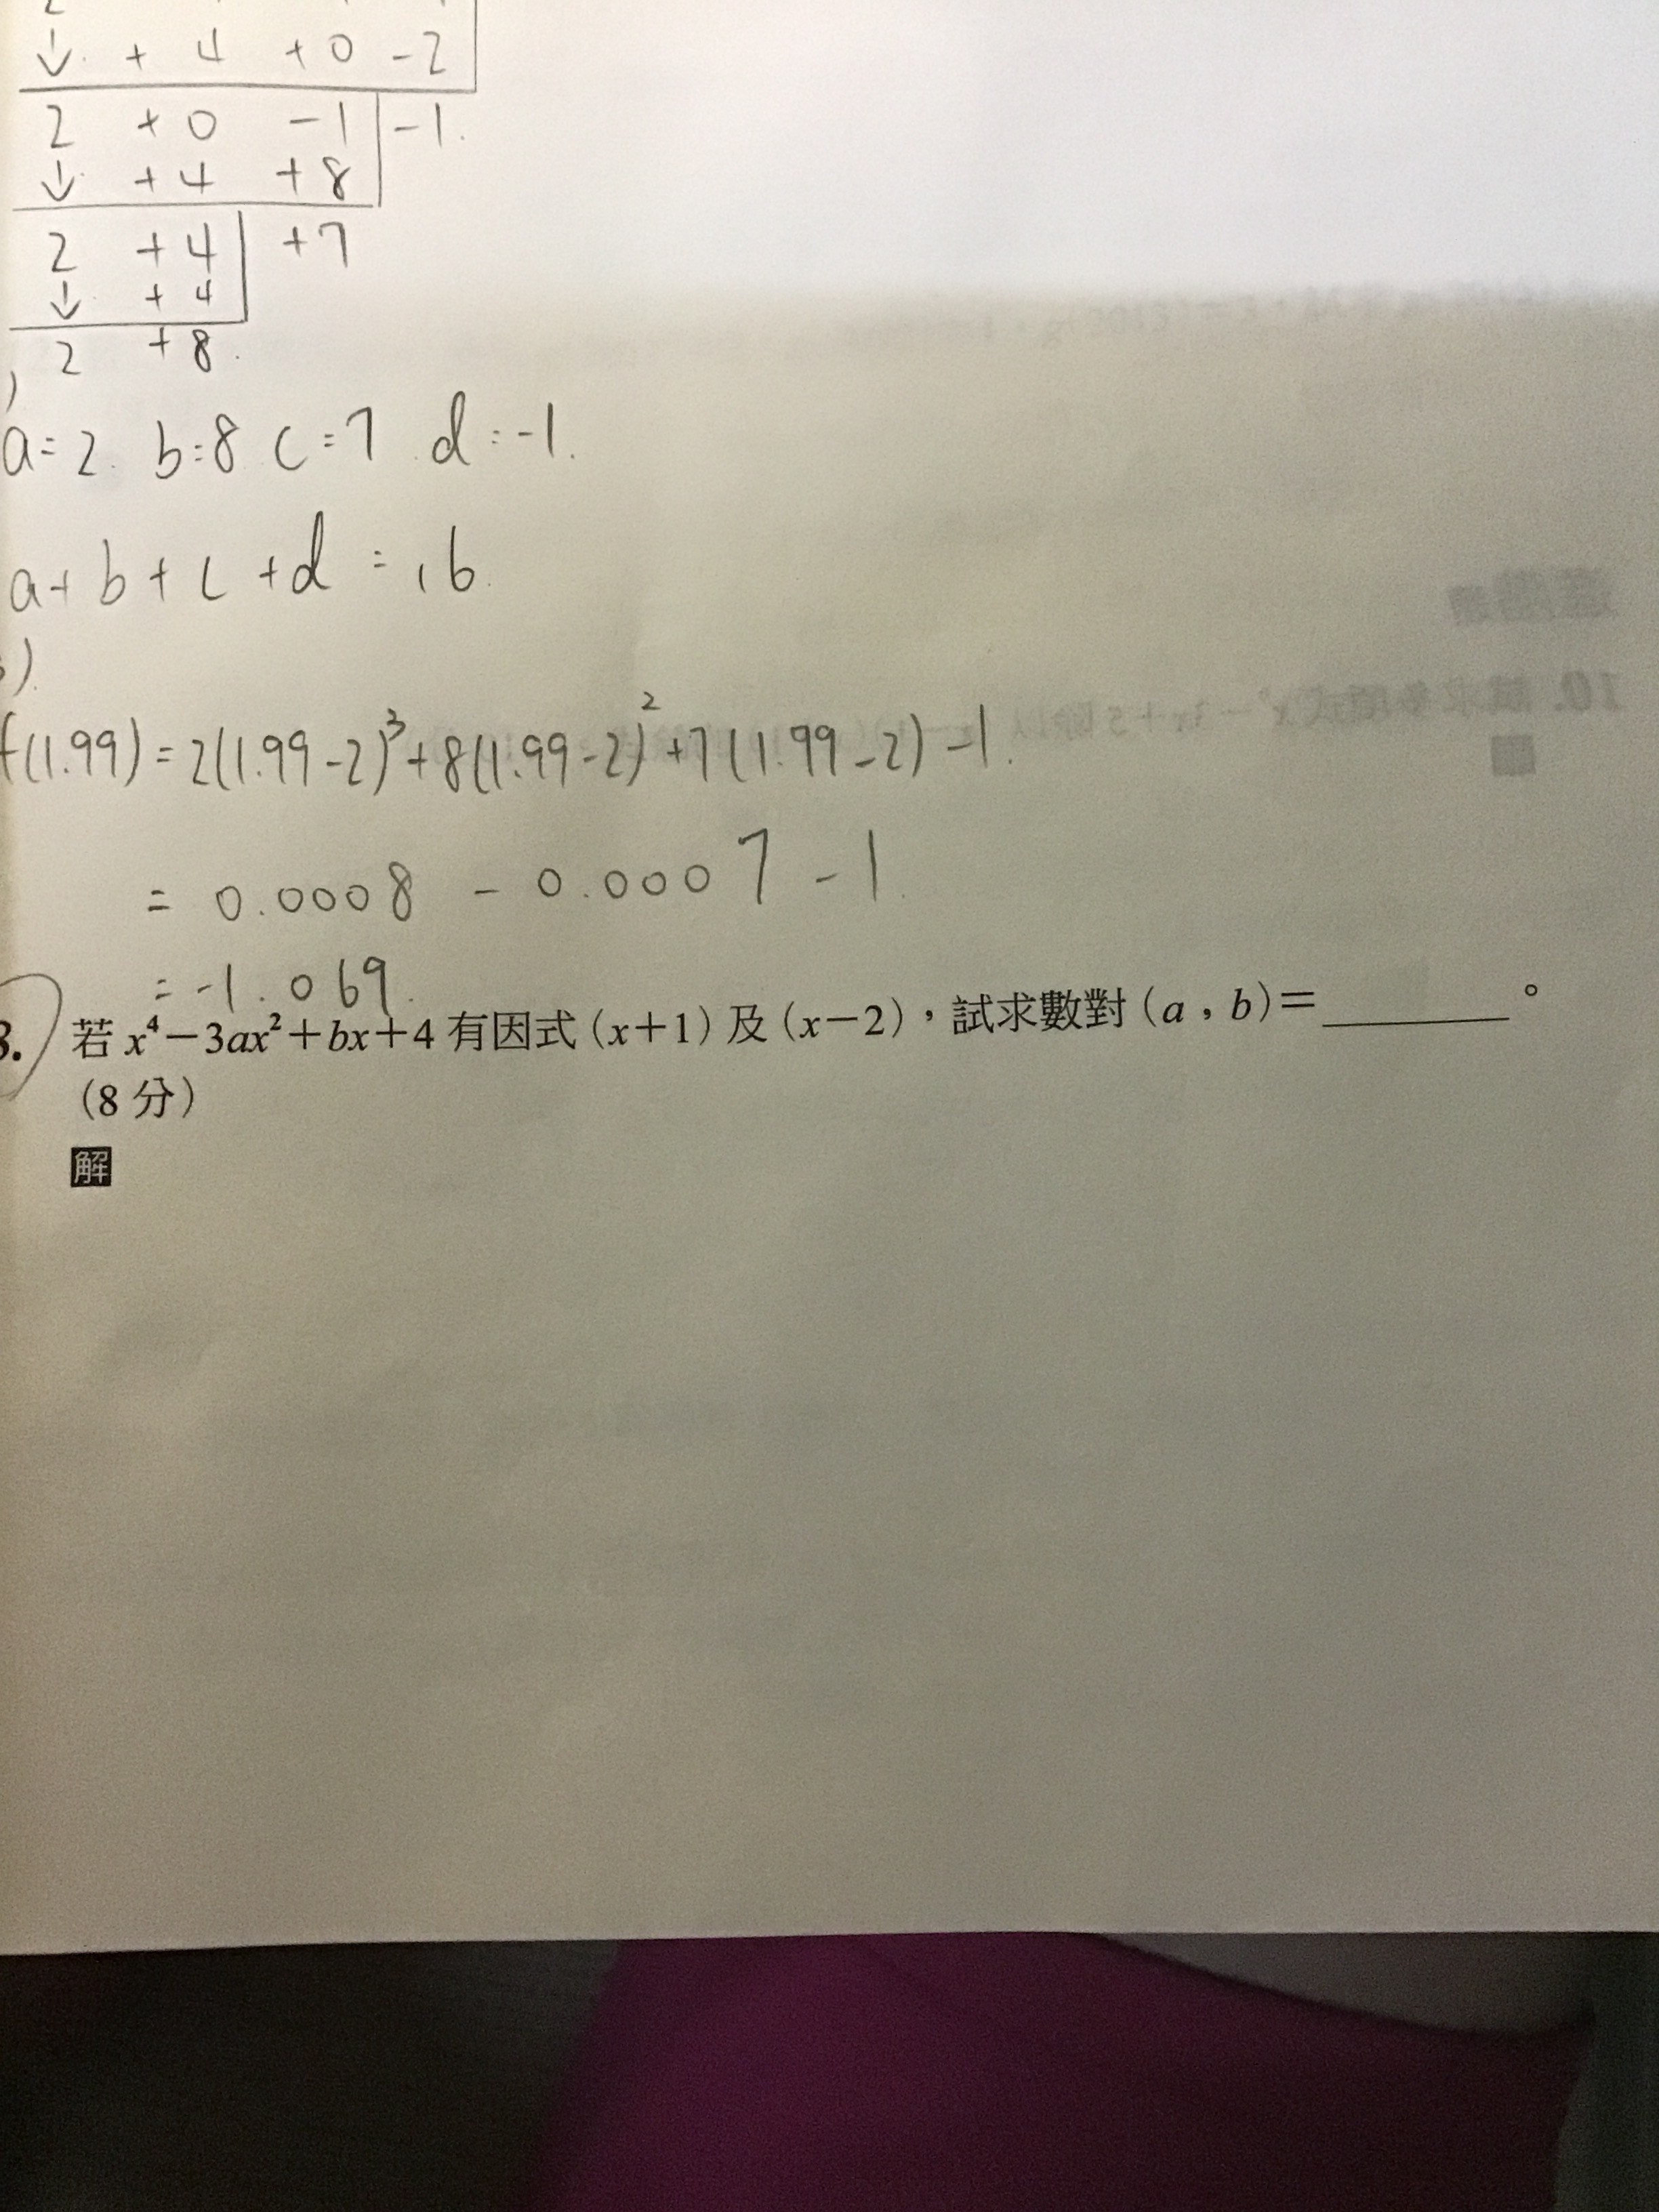 ↓ + 4 + 0 - 2
2 + 0 - 1 - 1.
↓ + 4 + 8
2 + 4 + 7
↓ + 4
2 + 8.
a = 2. b = 8 c = 7 d = -1.
a + b + c + d = 16
f(1.99) = 2(1.99 - 2)³ + 8(1.99 - 2)² + 7(1.99 - 2) - 1.
= 0.0008 - 0.0007 - 1.
= -1.069.
3. 若 x⁴-3ax²+bx+4 有因式(x+1)及(x-2),試求數對(a,b)=________。
(8 分)
解